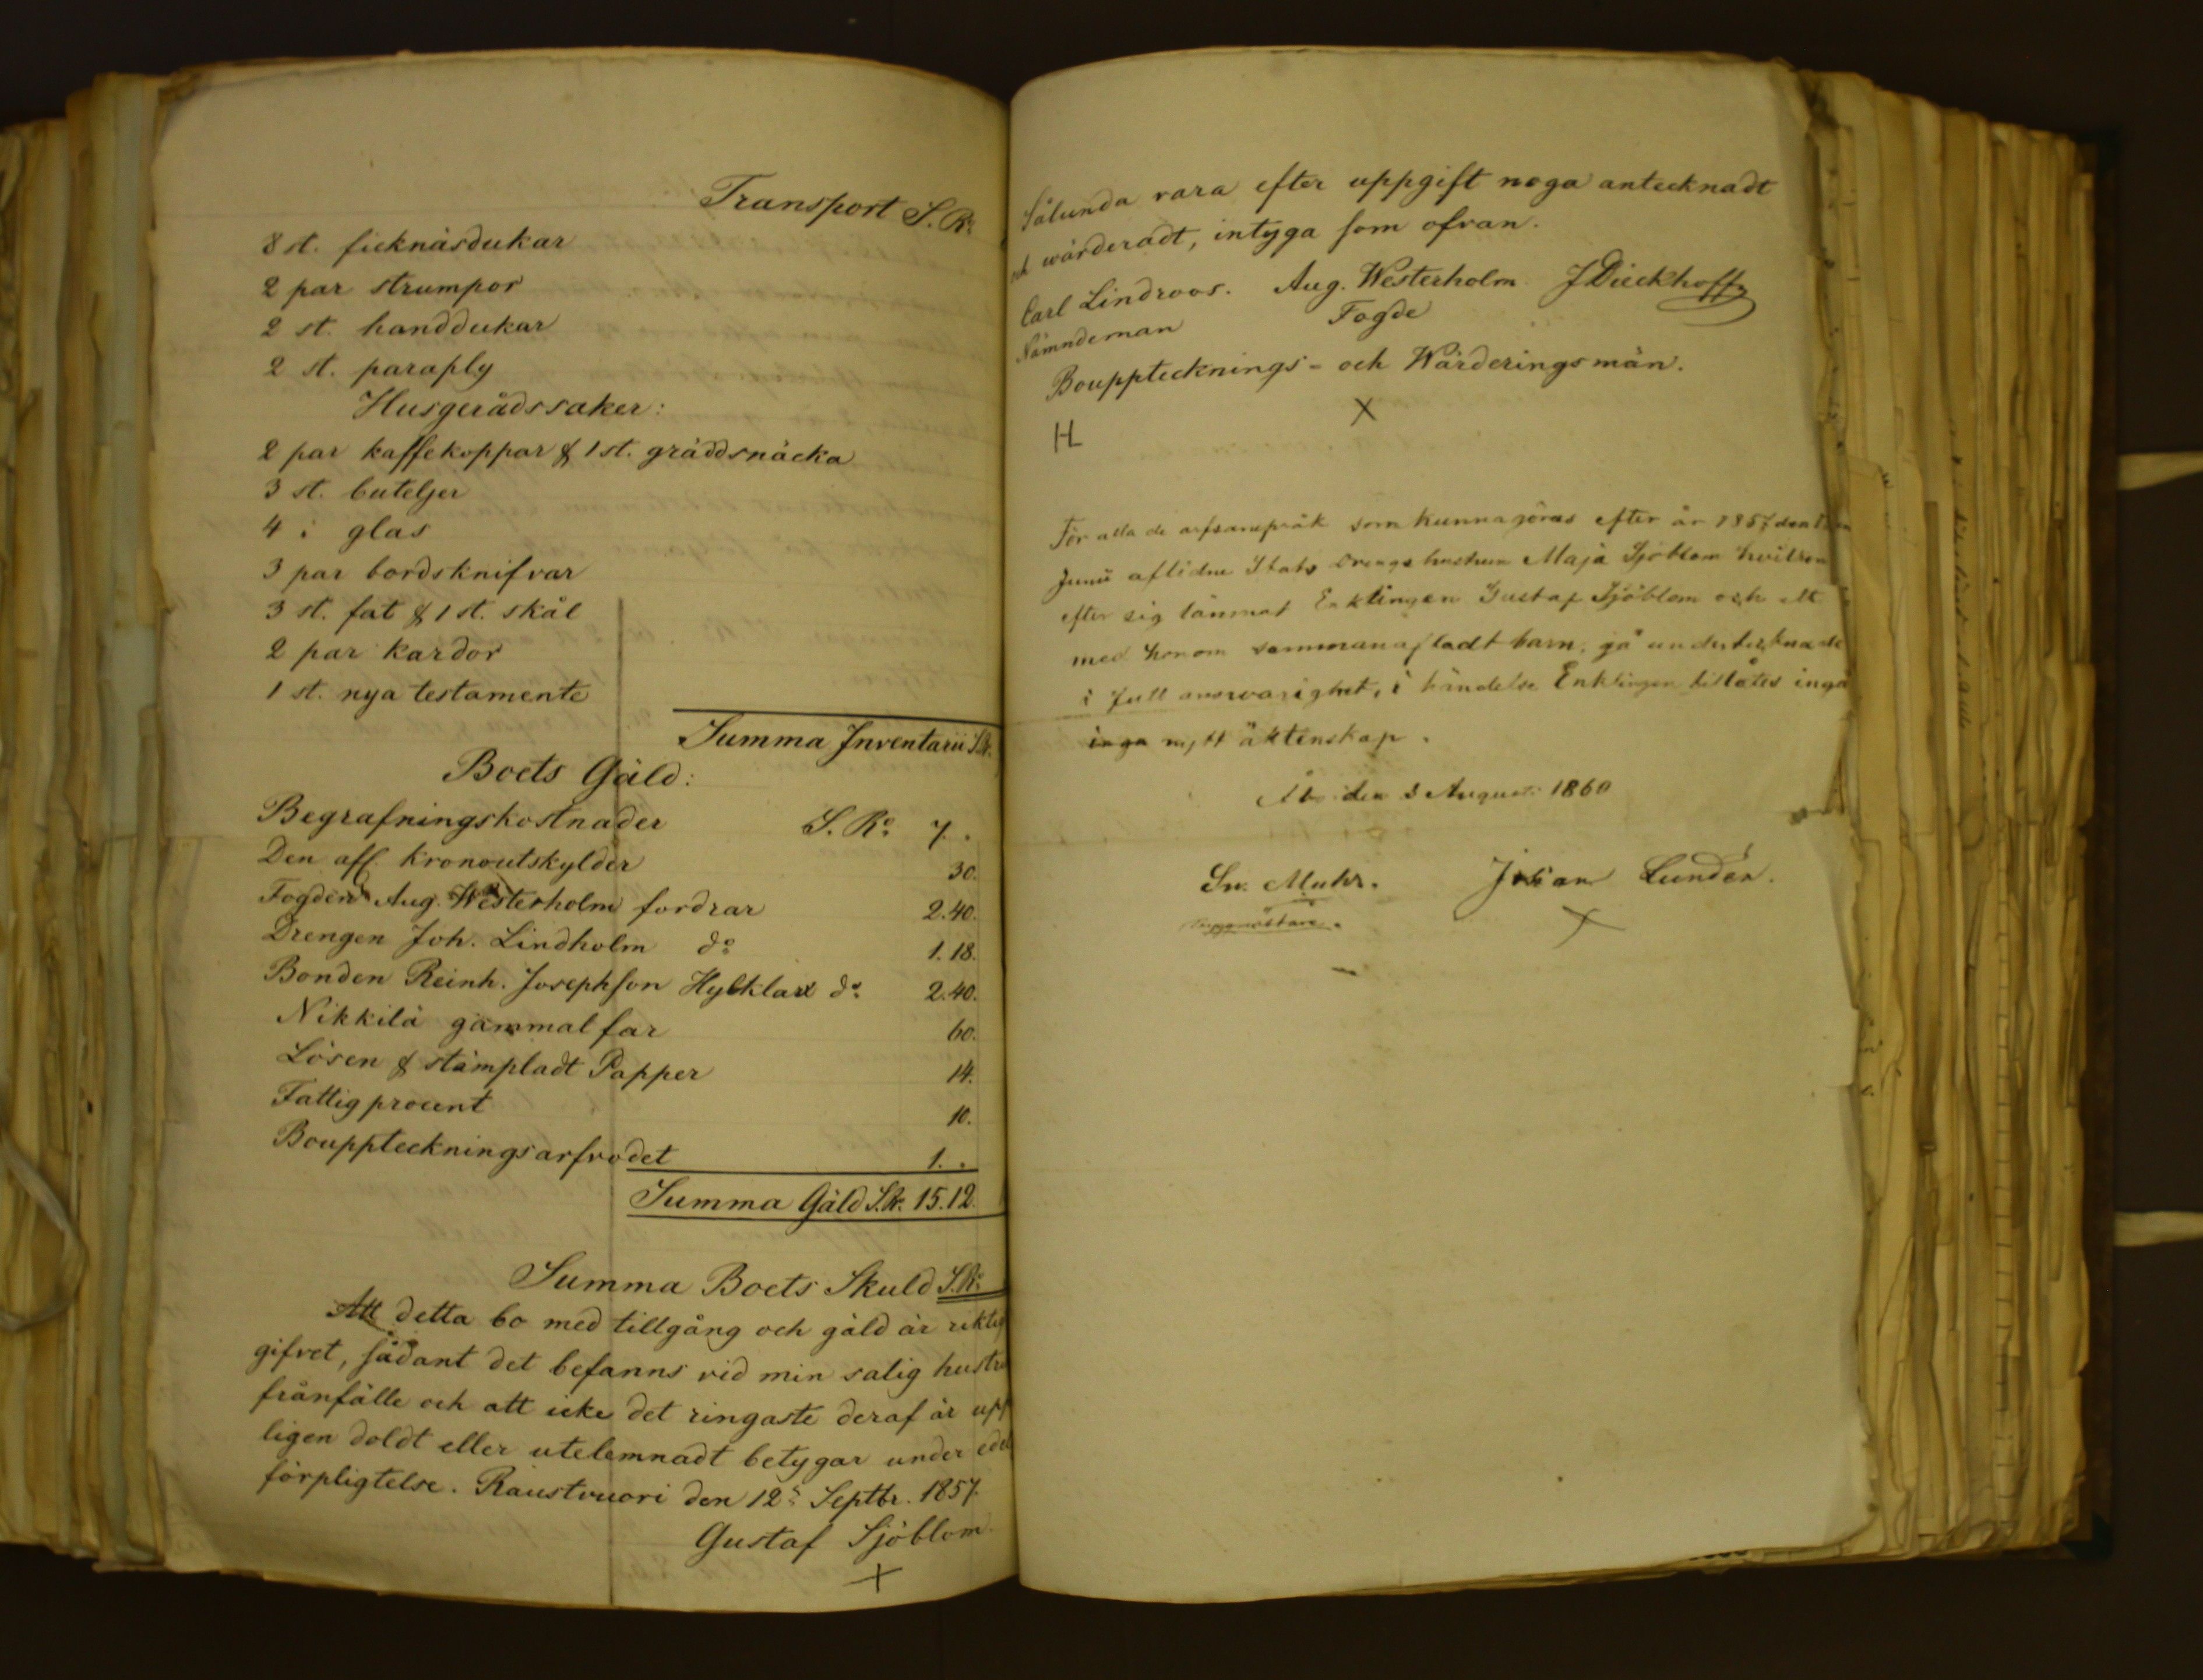 Transport S. Ro.
8 st. ficknäsdukar
2 par strumpor
2 st. handdukar
2 st. paraply
Husgerådssaker:
2 par kaffekoppar & 1 st. gräddsnäcka
3 st. buteljer
4 : glas
3 par bordsknifvar
3 st. fat & 1 st. skål
2 par kardor
1 st. nya testamente
Summa Inventarii S.R.
Boets Gäld:
Begrafningskostnader S. Ro. 7. .
Den afl. kronoutskylder 30.
Fogden Aug. Westerholm fordrar 2.40.
Drengen Joh. Lindholm do. 1.18.
Bonden Reinh. Josephson do. 2.40.
Nikkilä gammal far 60.
Lösen & stämpladt Papper 14.
Fattigprocent 10.
Bouppteckningsarfvodet 1. .
Summa Gäld S.R. 15.12.
Summa Boets Skuld S.Ro.
Att detta bo med tillgång och gäld är riktig
gifvet, sådant det befanns vid min salig hustru
frånfälle och att icke det ringaste deraf är upp
ligen doldt eller utelemnadt betygar under ede
förpligtelse. Raustvuori den 12 Septbr. 1857.
Gustaf Sjöblom
X
Sålunda vara efter uppgift noga antecknadt
och wärderadt, intyga som ofvan.
Carl Lindroos. Aug. Westerholm J Dieckhoff
Nämndeman Fogde
Bouppteckning­s- och Wärderingsmän.
H X
För alla de arfsanspråk som kunna göras efter år 1857 den
Junii aflidne Stats Drengs hustrun Maja Sjöblom hvilken
efter sig lämnat Enklingen Gustaf Sjöblom och ett
med honom sammanafladt barn, gå undertecknade
i full ansvarighet, i händelse Enklingen tillåtes ingå
inga nytt äktenskap.
Åbo den 3 Augusti 1860
Sv. Muhr. Johan Lundén.
X